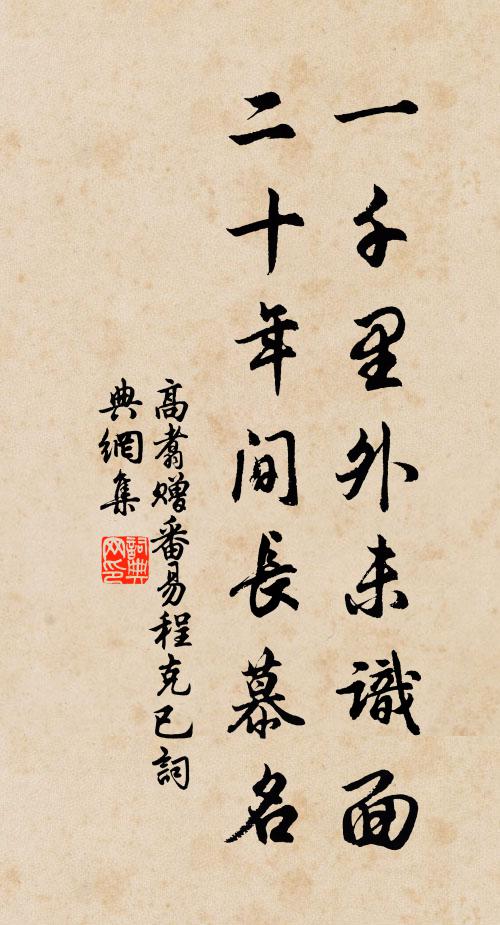 一千里外未識面
二十年間長慕名
高翥贈番易程克已詞
典網集
詞典
网印